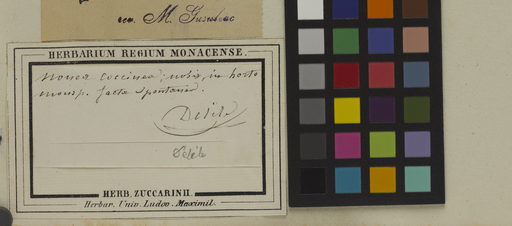 M. Gussone
HERBARIUM REGIUM MONACENSE.
Nonea coccinea; nobis, in horto
monsp. facta spontanea.
Delile
Delile
HERB. ZUCCARINII.
Herbar. Univ. Ludov. Maximil.